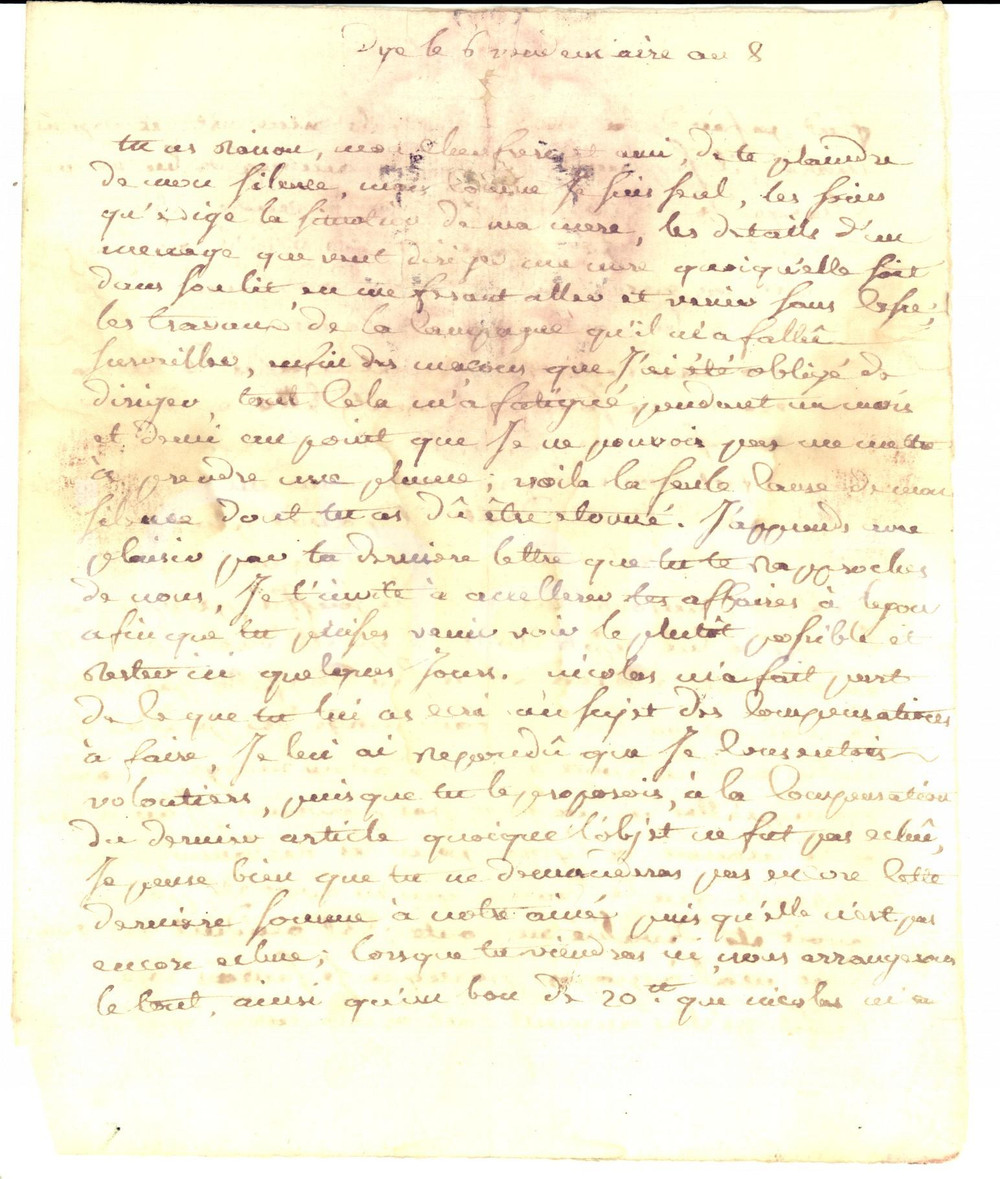 Dye le 6 vendemiaire an 8
tu as raison, mon cher frere et ami, de te plaindre
de mon silence, mais comme je suis seul, les soins
qu'exige la situation de ma mere, les details d'un
menage que veut diriger ma mere quoiqu'elle soit
dans son lit en me fesant aller et venir sans cesse,
les travaux de la campagne qu'il m'a fallû
surveiller, enfin des macons que j'ai été obligé de
diriger, tout cela m'a fatigué pendant un mois
et demi au point que je ne pouvois pas me mettre
à prendre une plume; voila la seule cause de mon
silence dont tu as dû être étonné. J'apprends avec
plaisir par ta derniere lettre que tu te rapproches
de nous, je t'invite à accellerer tes affaires à
afin que tu puisses venir voir le plutôt possible et
rester ici quelques jours. nicolas m'a fait part
de ce que tu lui as ecri au sujet des compensations
à faire, je lui ai repondû que je consentois
volontiers, puisque tu le proposois, à la compensation
du dernier article quoique l'objet ne fut pas echû,
je pense bien que tu ne demanderas pas encore cette
derniere somme à notre ainé puisqu'elle n'est pas
encore echue; lorsque tu viendras ici nous arrangerons
le tout, ainsi qu'un bon de 20tt que nicolas m'a